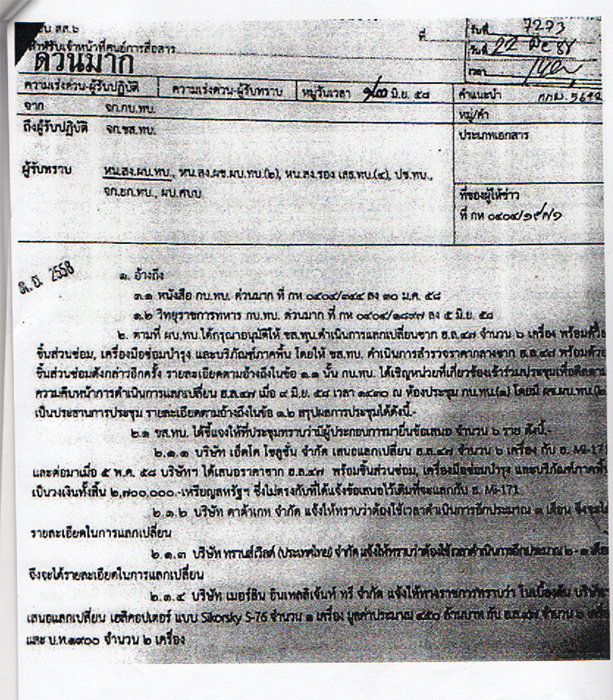 สส.๖
สำหรับเจ้าหน้าที่ศูนย์การสื่อสาร
ที่
วันที่ 7223
วันที่ 22
เวลา
ด่วนมาก
ความเร่งด่วน-ผู้รับปฏิบัติ ความเร่งด่วน-ผู้รับทราบ หมู่วันเวลา มิ.ย. ๕๘ คำแนะนำ
จาก จก.กบ.ทบ. หมู่/คำ
ถึงผู้รับปฏิบัติ จก.ขส.ทบ. ประเภทเอกสาร
ผู้รับทราบ หน.สง.ผบ.ทบ., หน.สง.ผช.ผบ.ทบ.(๒), หน.สง.รอง เสธ.ทบ.(๔), ปช.ทบ.,
จก.ยก.ทบ., ผบ.ศบบ
ที่ของผู้ให้ข่าว
ที่ กห ๐๔๐๔/
2558
๑. อ้างถึง
๑.๑ หนังสือ กบ.ทบ. ด่วนมาก ที่ กห ๐๔๐๔/๓๔๔ ลง ๓๐ ม.ค. ๕๘
๑.๒ วิทยุราชการทหาร กบ.ทบ. ด่วนมาก ที่ กห ๐๔๐๔/๑๘๙๗ ลง ๕ มิ.ย. ๕๘
๒. ตามที่ ผบ.ทบ.ได้กรุณาอนุมัติให้ ขส.ทบ.ดำเนินการแลกเปลี่ยนซาก ฮ.ล.๔๗ จำนวน ๖ เครื่อง พร้อมด้วย
ชิ้นส่วนซ่อม, เครื่องมือซ่อมบำรุง และบริภัณฑ์ภาคพื้น โดยให้ ขส.ทบ. ดำเนินการสำรวจราคากลางซาก ฮ.ล.๔๗ พร้อมด้วย
ชิ้นส่วนซ่อมดังกล่าวอีกครั้ง รายละเอียดตามอ้างถึงในข้อ ๑.๑ นั้น กบ.ทบ. ได้เชิญหน่วยที่เกี่ยวข้องเข้าร่วมประชุมเพื่อติดตาม
ความคืบหน้าการดำเนินการแลกเปลี่ยน ฮ.ล.๔๗ เมื่อ ๙ มิ.ย. ๕๘ เวลา ๑๔๓๐ ณ ห้องประชุม กบ.ทบ.(๑) โดยมี ผช.ผบ.ทบ.(๒)
เป็นประธานการประชุม รายละเอียดตามอ้างถึงในข้อ ๑.๒ สรุปผลการประชุมได้ดังนี้.-
๒.๑ ขส.ทบ. ได้ชี้แจงให้ที่ประชุมทราบว่ามีผู้ประกอบการมายื่นข้อเสนอ จำนวน ๖ ราย ดังนี้.-
๒.๑.๑ บริษัท เอ็ดโค โซลูชั่น จำกัด เสนอแลกเปลี่ยน ฮ.ล.๔๗ จำนวน ๖ เครื่อง กับ ฮ. Mi-171
และต่อมาเมื่อ ๕ พ.ค. ๕๘ บริษัทฯ ได้เสนอราคาซาก ฮ.ล.๔๗ พร้อมชิ้นส่วนซ่อม, เครื่องมือซ่อมบำรุง และบริภัณฑ์ภาคพื้น
เป็นวงเงินทั้งสิ้น ๒,๗๐๐,๐๐๐.-เหรียญสหรัฐฯ ซึ่งไม่ตรงกับที่ได้แจ้งข้อเสนอไว้เดิมที่จะแลกกับ ฮ. Mi-171
๒.๑.๒ บริษัท ดาต้าเกท จำกัด แจ้งให้ทราบว่าต้องใช้เวลาดำเนินการอีกประมาณ ๑ เดือน จึงจะได้
รายละเอียดในการแลกเปลี่ยน
๒.๑.๓ บริษัท ทรานส์เวิลด์ (ประเทศไทย) จำกัด แจ้งให้ทราบว่าต้องใช้เวลาดำเนินการอีกประมาณ ๒ - ๓ เดือน
จึงจะได้รายละเอียดในการแลกเปลี่ยน
๒.๑.๔ บริษัท เมอร์ลิน อินเทลลิเจ้นท์ ทรี จำกัด แจ้งให้ทางราชการทราบว่า ในเบื้องต้น บริษัทฯ
เสนอแลกเปลี่ยน เฮลิคอปเตอร์ แบบ Sikorsky S-76 จำนวน ๑ เครื่อง มูลค่าประมาณ ๔๕๐ ล้านบาท กับ ฮ.ล.๔๗ จำนวน ๖ เครื่อง
และ บ.ท.๑๙๐๐ จำนวน ๒ เครื่อง